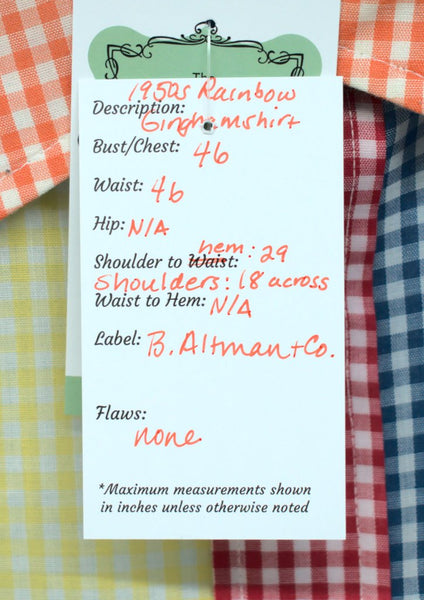 The
1950s Rainbow
Description: Ginghamshirt
Bust/Chest: 46
Waist: 46
Hip: N/A
Shoulder to Waist: hem: 29
Shoulders: 18 across
Waist to Hem: N/A
Label: B. Altman + Co.
Flaws:
none
*Maximum measurements shown
in inches unless otherwise noted